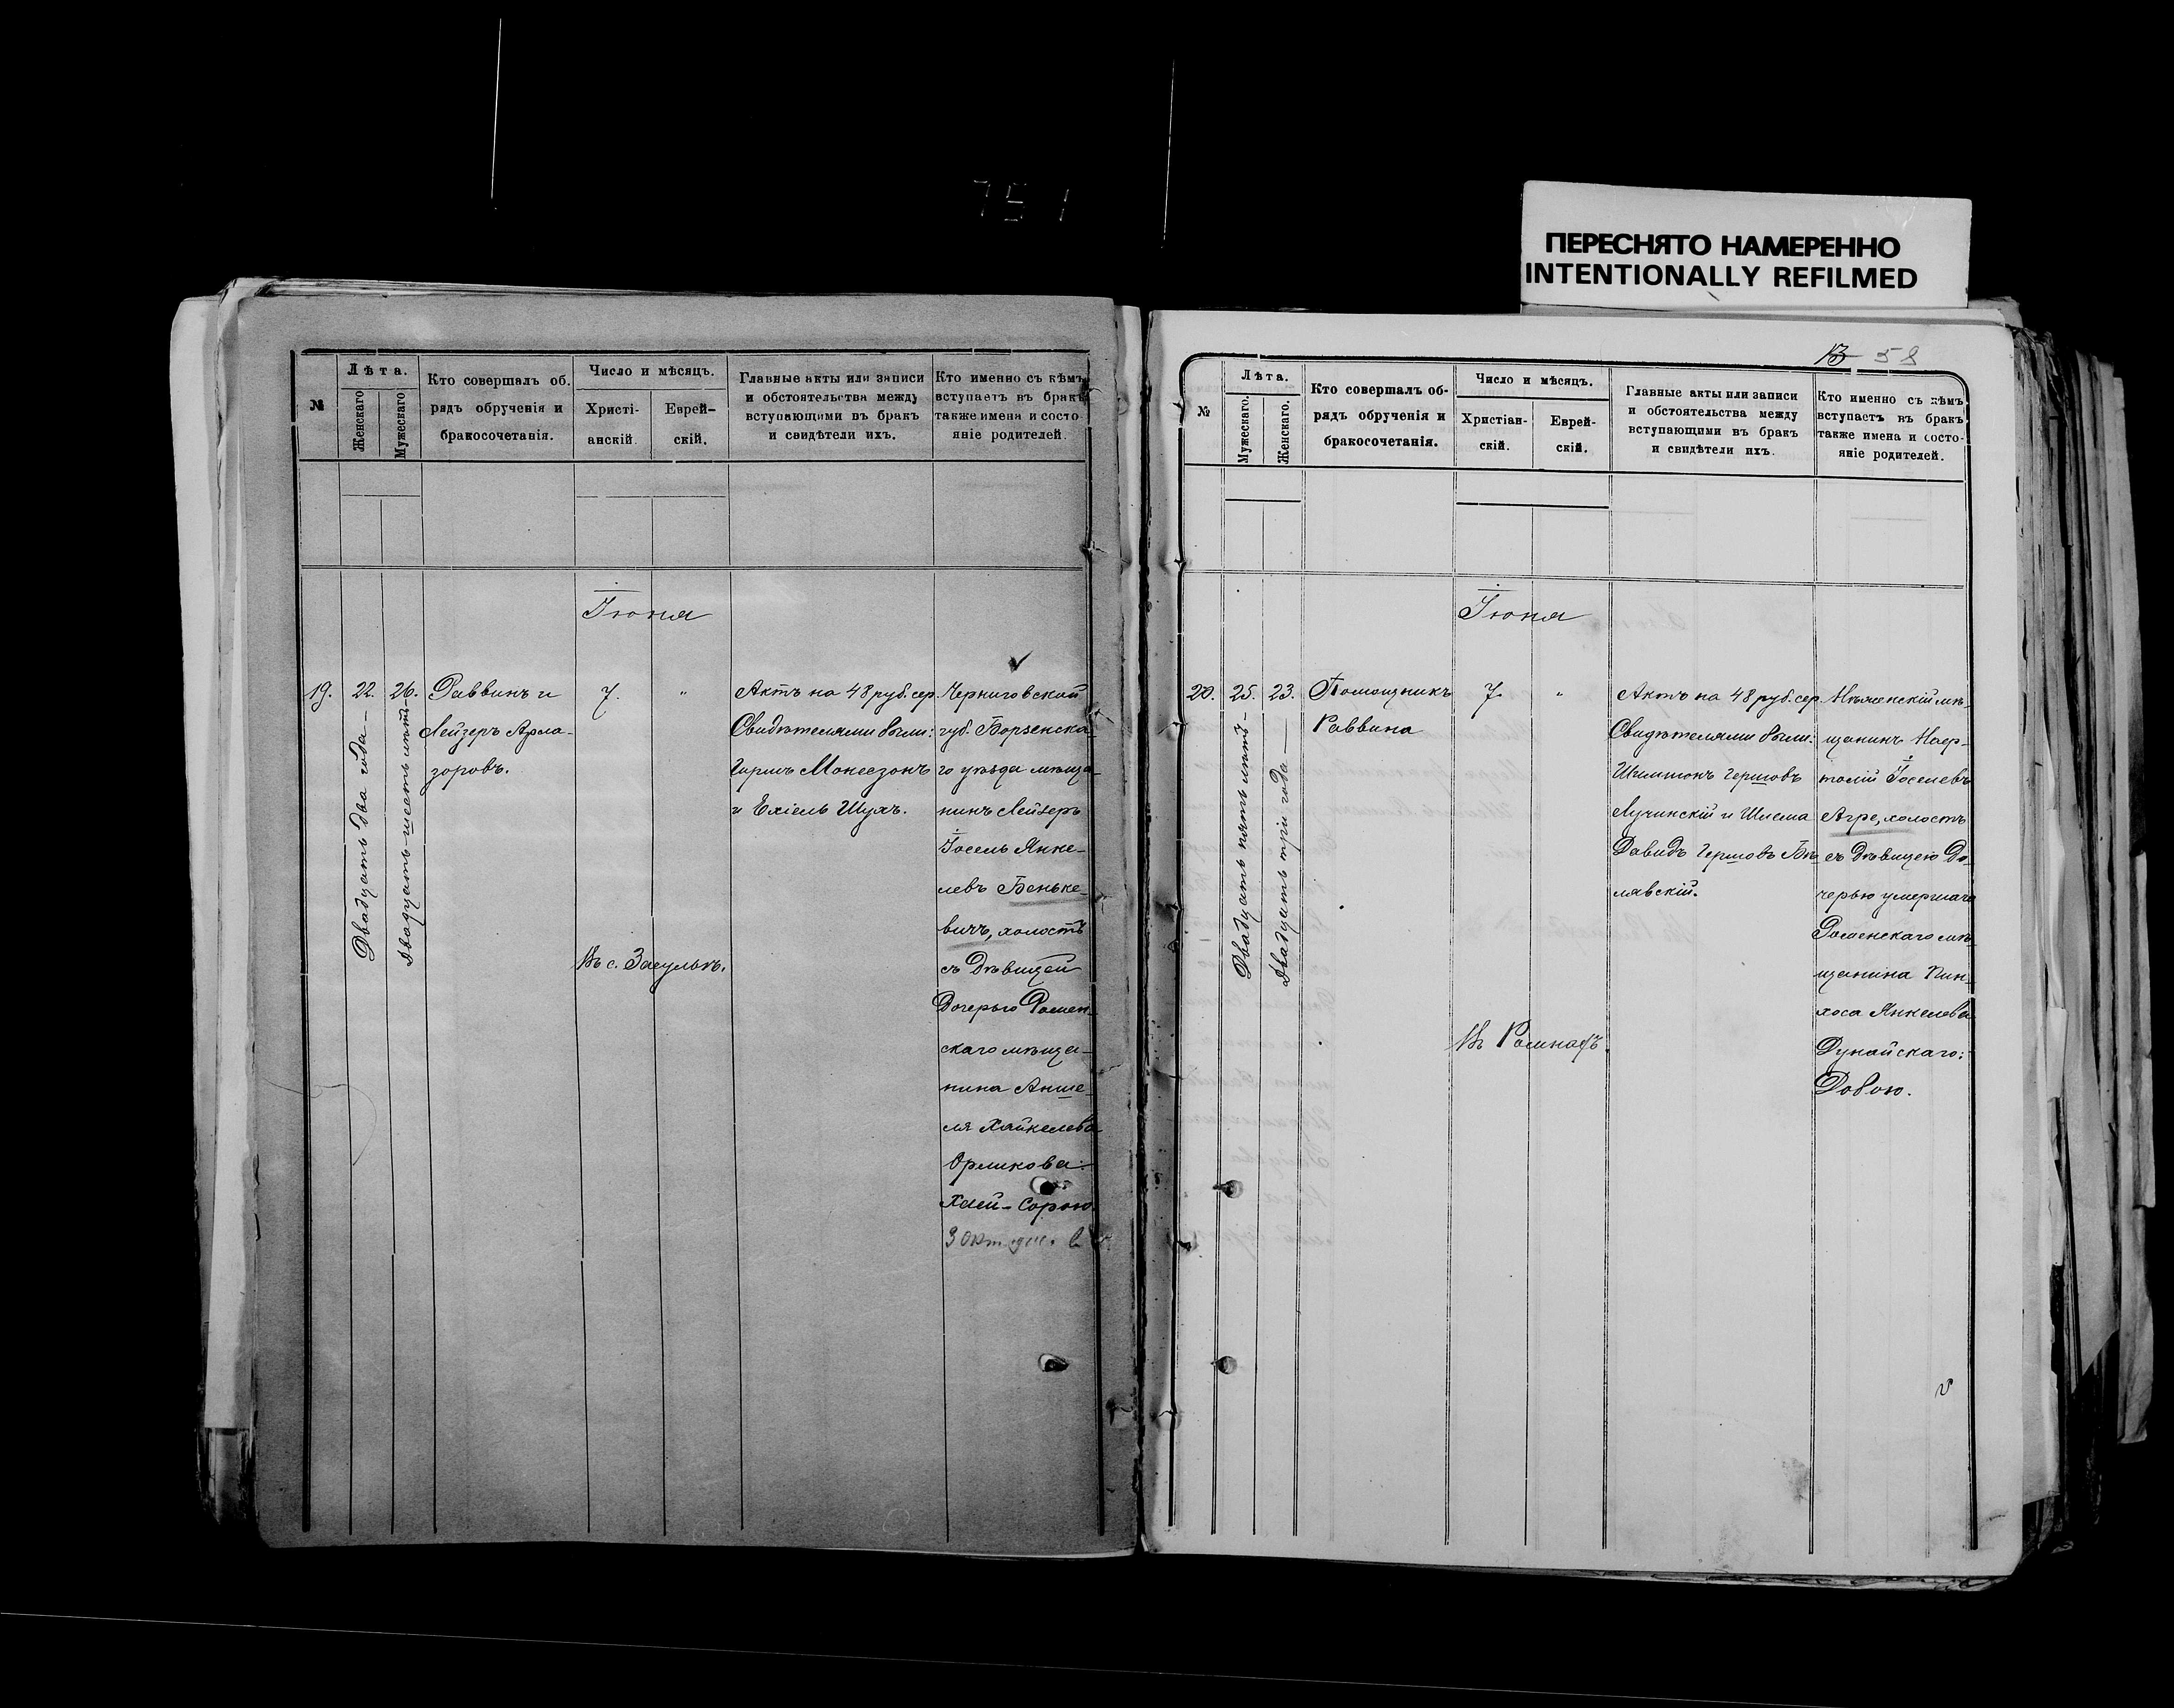 751
ПЕРЕСНЯТО НАМЕРЕННО
INTENTIONALLY REFILMED
№
Лѣта.
Женскаго
Мужескаго
Кто совершалъ об-
рядъ обрученія и
бракосочетанія.
Число и мѣсяцъ.
Христі-
анскій.
Еврей-
скій.
Главные акты или записи
и обстоятельства между
вступающими въ бракъ
и свидѣтели ихъ.
Кто именно съ кѣмъ
вступаетъ въ бракъ
также имена и состо-
яніе родителей.
Іюня
19.
22.
Двадцать два года
26.
Двадцать-шесть лѣтъ
Раввинъ и
Лейзеръ Арла-
зоровъ.
7.
"
Въ с. Засульѣ.
Актъ на 48 руб. сер.
Свидѣтелями были:
Гиршъ Монесзонъ
и Ехіель Шухъ.
Черниговской
губ. Борзенска-
го уѣзда мѣща-
нинъ Лейзеръ
Іосель Янке-
левъ Беньке-
вичъ, холостъ
съ Дѣвицей
Дочерью Ромен-
скаго мѣща-
нина Анше-
ля Хайкелева
Орликова:
Хаей-Сорою.
13 58
№
Лѣта.
Мужескаго.
Женскаго.
Кто совершалъ об-
рядъ обрученія и
бракосочетанія.
Число и мѣсяцъ.
Христіан-
скій.
Еврей-
скій.
Главные акты или записи
и обстоятельства между
вступающими въ бракъ
и свидѣтели ихъ.
Кто именно съ кѣмъ
вступаетъ въ бракъ
также имена и состо-
яніе родителей.
Іюня
20.
25.
Двадцать пять лѣтъ
23.
Двадцать три года
Помощникъ
Раввина
7.
"
Въ Ромнахъ.
Актъ на 48 руб. сер.
Свидѣтелями были:
Шлимонъ Гершовъ
Лучинскій и Шлема
Давидъ Гершовъ Бѣ-
лявскій.
щанинъ
Іоселевъ
Агре, холостъ
съ Дѣвицею До-
черью умершаго
Роменскаго мѣ-
щанина Пин-
хоса Янкелева
Дунайскаго:
Добою.